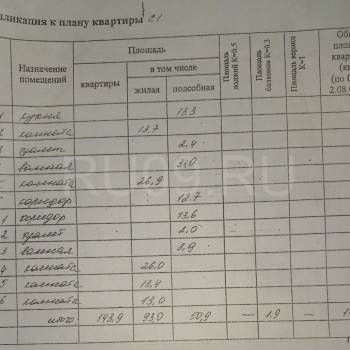 пликация к плану квартиры 21
Назначение помещений
Площадь
квартиры
в том числе
жилая
подсобная
Площадь лоджий К=0,5
Площадь балконов К=0,3
Площадь веранд К=1
Об
площ
кварт
(к
(по
2.08.
кухня 13,3
2 комната 13,7
туалет 2,4
ванная 3,0
комната 26,9
коридор 12,7
1 коридор 13,6
2 туалет 2,0
3 ванная 3,9
4 комната 26,0
5 комната 13,4
6 комната 13,0
итого: 143,9 93,0 50,9 — 1,9 — 1
RU09.RU